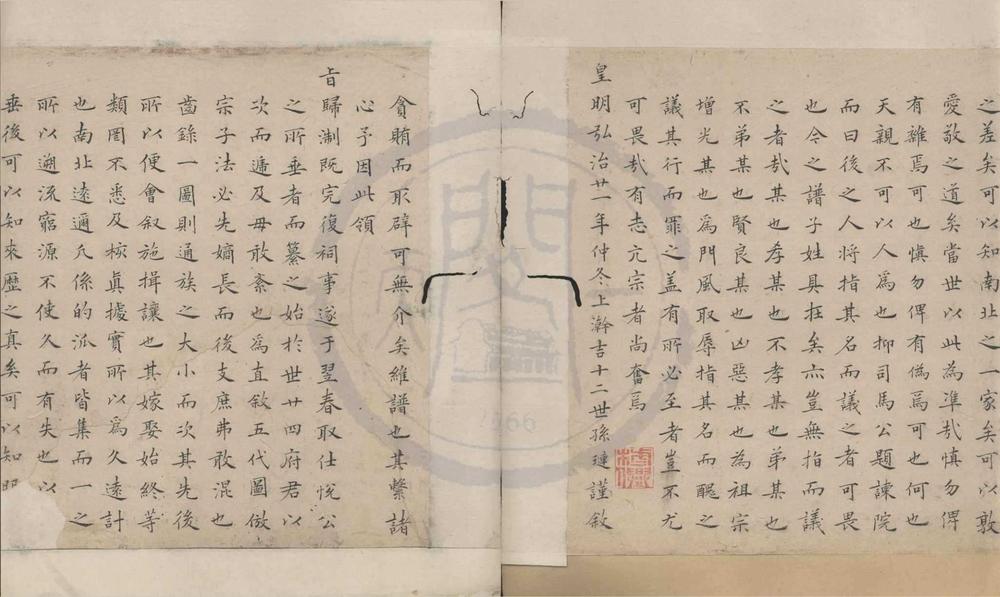 之差矣可以知南北之一家矣可以敦
愛敬之道矣當世以此為準㢤慎勿俾
有雜焉可也慎勿俾有僞焉可也何也
天親不可以人爲也抑司馬公題諫院
而曰後之人將指其名而議之者可畏
也今之譜子姓具在矣亦豈無指而議
之者㢤某也孝某也不孝某也弟某也
不弟某也賢良某也凶惡某也為祖宗
增光某也爲門風取辱指其名而醜之
議其行而罪之盖有所必至者豈不尤
可畏㢤有志亢宗者尚奮焉
皇明弘治廿一年仲冬上澣吉十二世孫璉謹敘
貪賄而取辟可無介矣維譜也其繫諸
心予因此領
旨歸制既完復祠事遂于翌春取仕悅公
之所垂者而纂之始於世廿四府君以
次而遞及毋敢紊也為直敘五代圖倣
宗子法必先嫡長而後支庶弗敢混也
齒錄一圖則通族之大小而次其先後
所以便會叙施揖讓也其嫁娶始終等
類罔不悉及核眞據實所以爲久遠計
也南北遠邇凢係的派者皆集而一之
所以遡流窮源不使久而有失也以
垂後可以知來歷之真矣可以知昭
1666